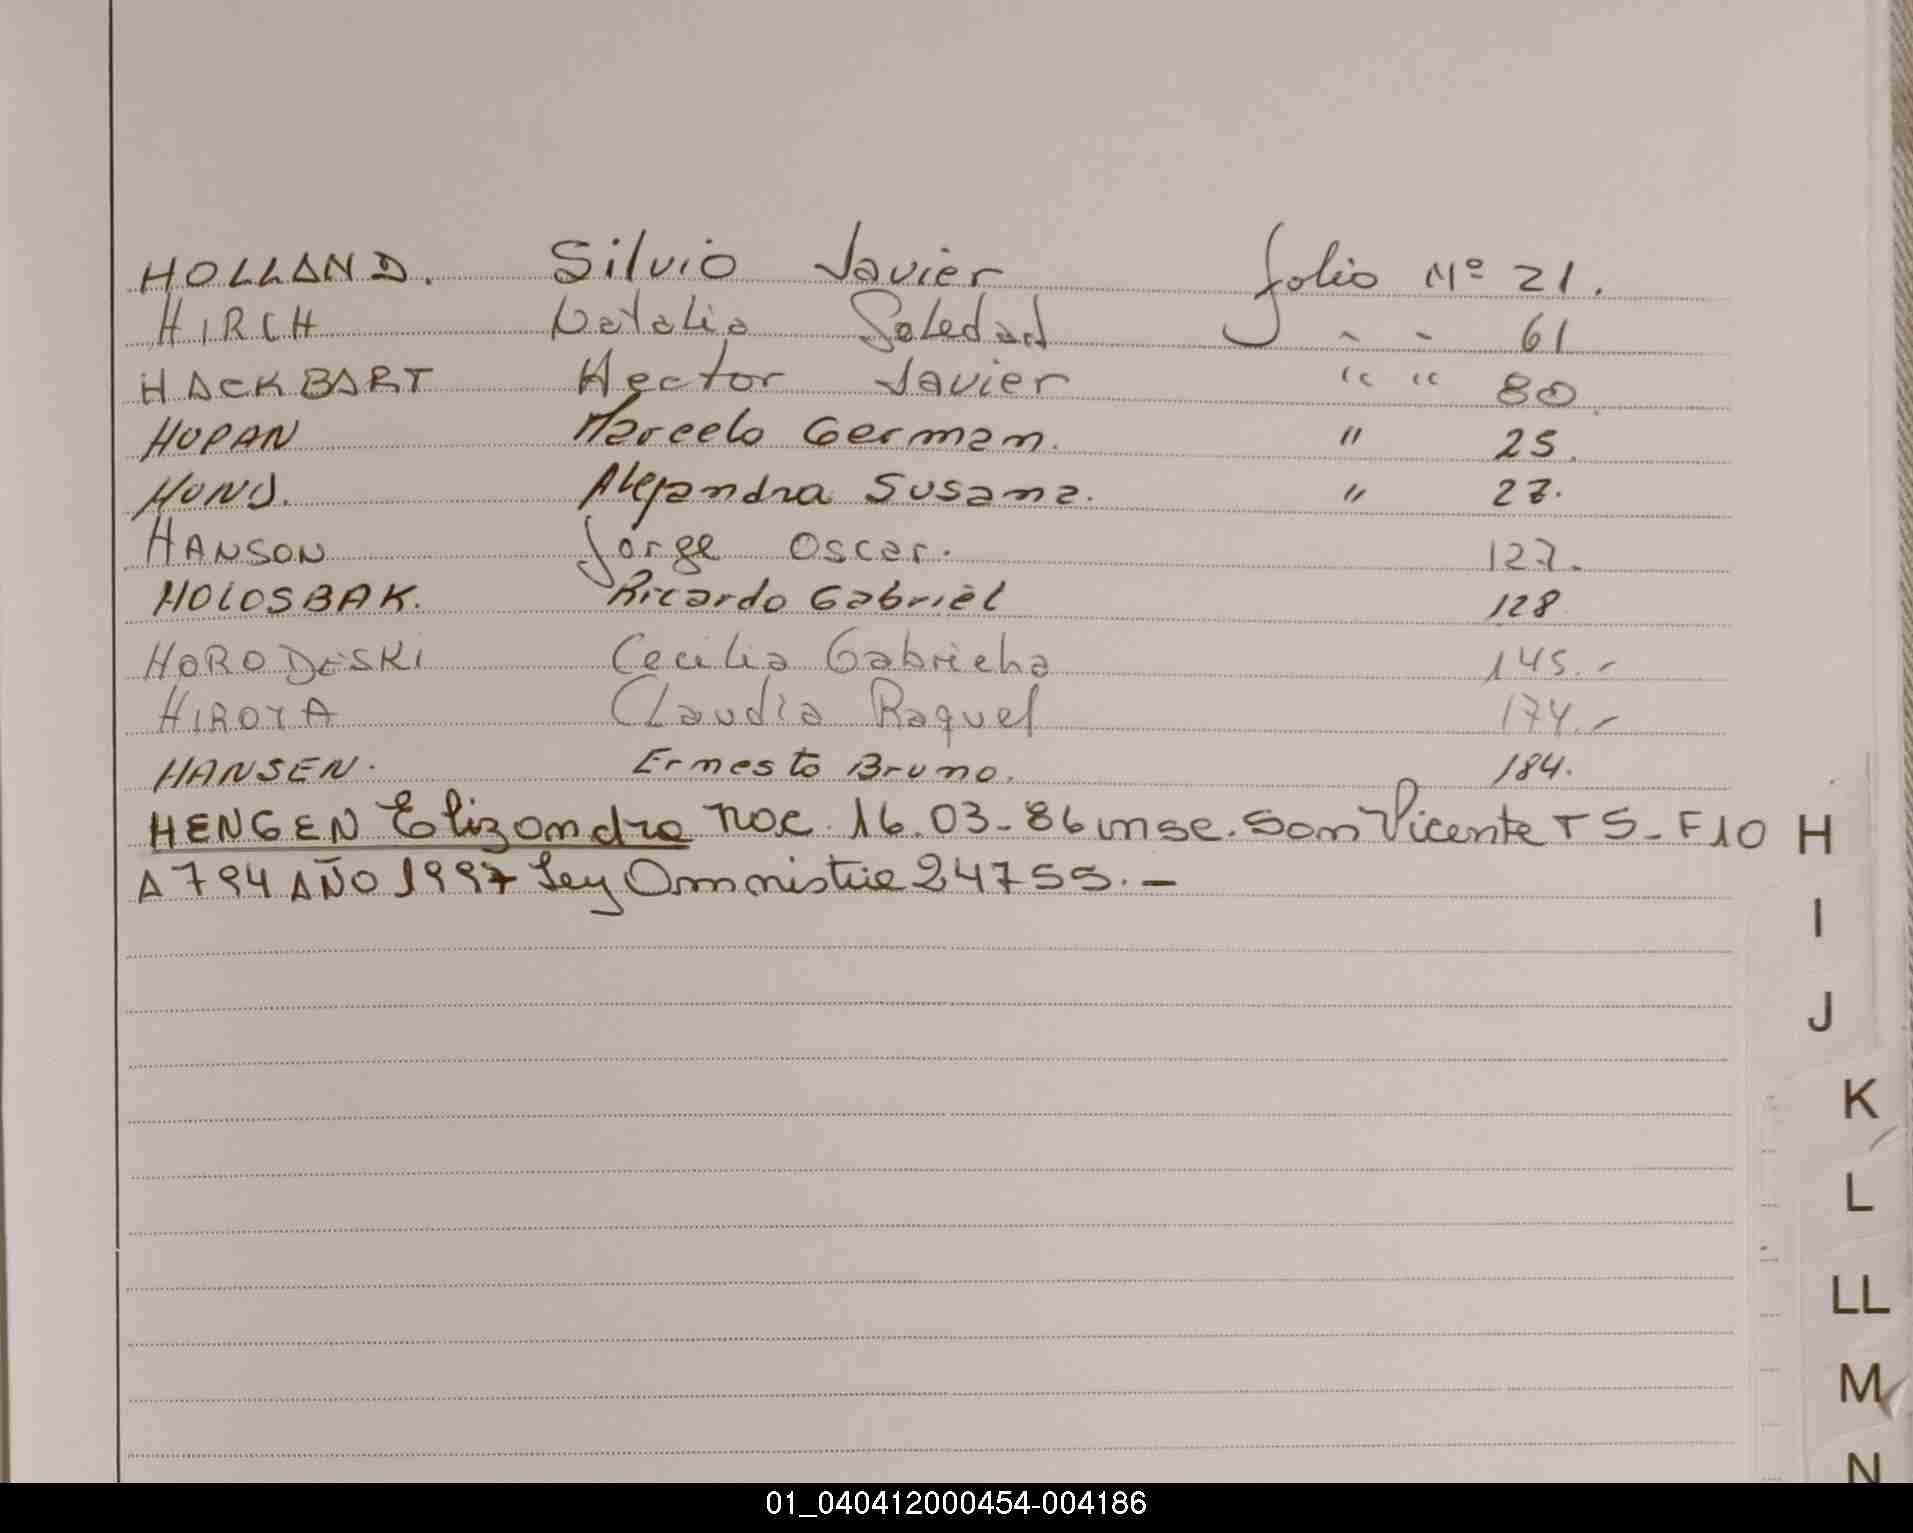 HOLLAND. Silvio Javier folio Nº 21.
HIRCH Natalia Soledad " " 61
HACKBART Hector Javier " " 80.
HUPAN Marcelo German. " 25.
HUNO. Alejandra Susana. " 27.
HANSON Jorge Oscar. 127.
HOLOSBAK. Ricardo Gabriel 128
HORODESKI Cecilia Gabriela 145.-
HIROTA Claudia Raquel 174.-
HANSEN. Ernesto Bruno. 184.
HENGEN Elizandra nac. 16.03-86 insc. San Vicente T 5- F10
A 794 AÑO 1997 Ley Amnistia 24755.-
H
I
J
K
L
LL
M
N
01_040412000454-004186